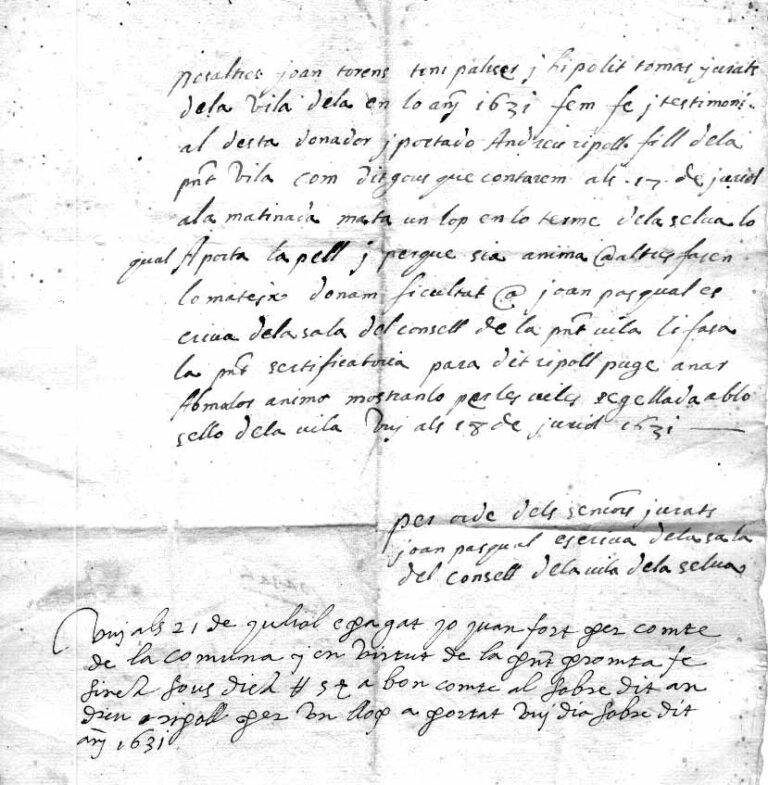 peralties joan torens toni paliser j hipolit tomas jurats
dela vila dela en lo anj 1631 fem fe j testimoni
al desta donador j portado Andreu ripoll fill dela
pnt vila com ditgous que contarem als 17 de juriol
ala matinada mata un lop en lo terme dela selva lo
qual Aporta la pell j perque sia anima @ altres fasen
lo mateix donam ficultat @ joan pasqual es
criva dela sala del consell de la pnt vila li fasa
la pnt sertificatoria para dit ripoll puge anar
animo mostranlo per les viles segellada ab lo
sello dela vila Vuj als 18 de juriol 1631
per orde dels seniors jurats
joan pasqual escriva dela sala
del consell dela vila dela selva
Vuj als 21 de juliol e pagat jo juan fort per comte
de la comuna j en virtut de la pnt promta fe
sinch sous dich # 5 a bon comte al sobre dit an
dreu ripoll per un llop a portat vuj dia sobre dit
anj 1631